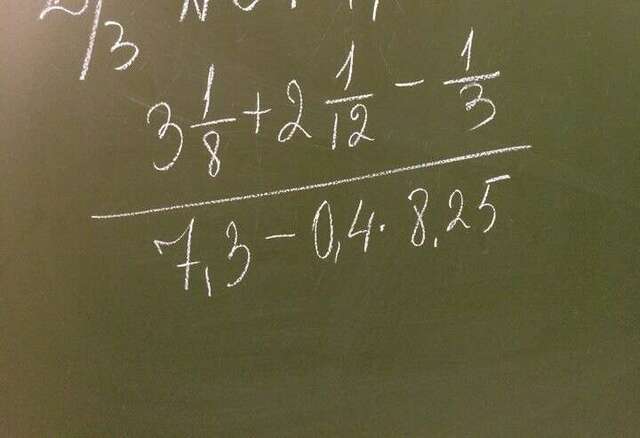 3 1/8 + 2 1/12 - 1/3
7,3 - 0,4 · 8,25